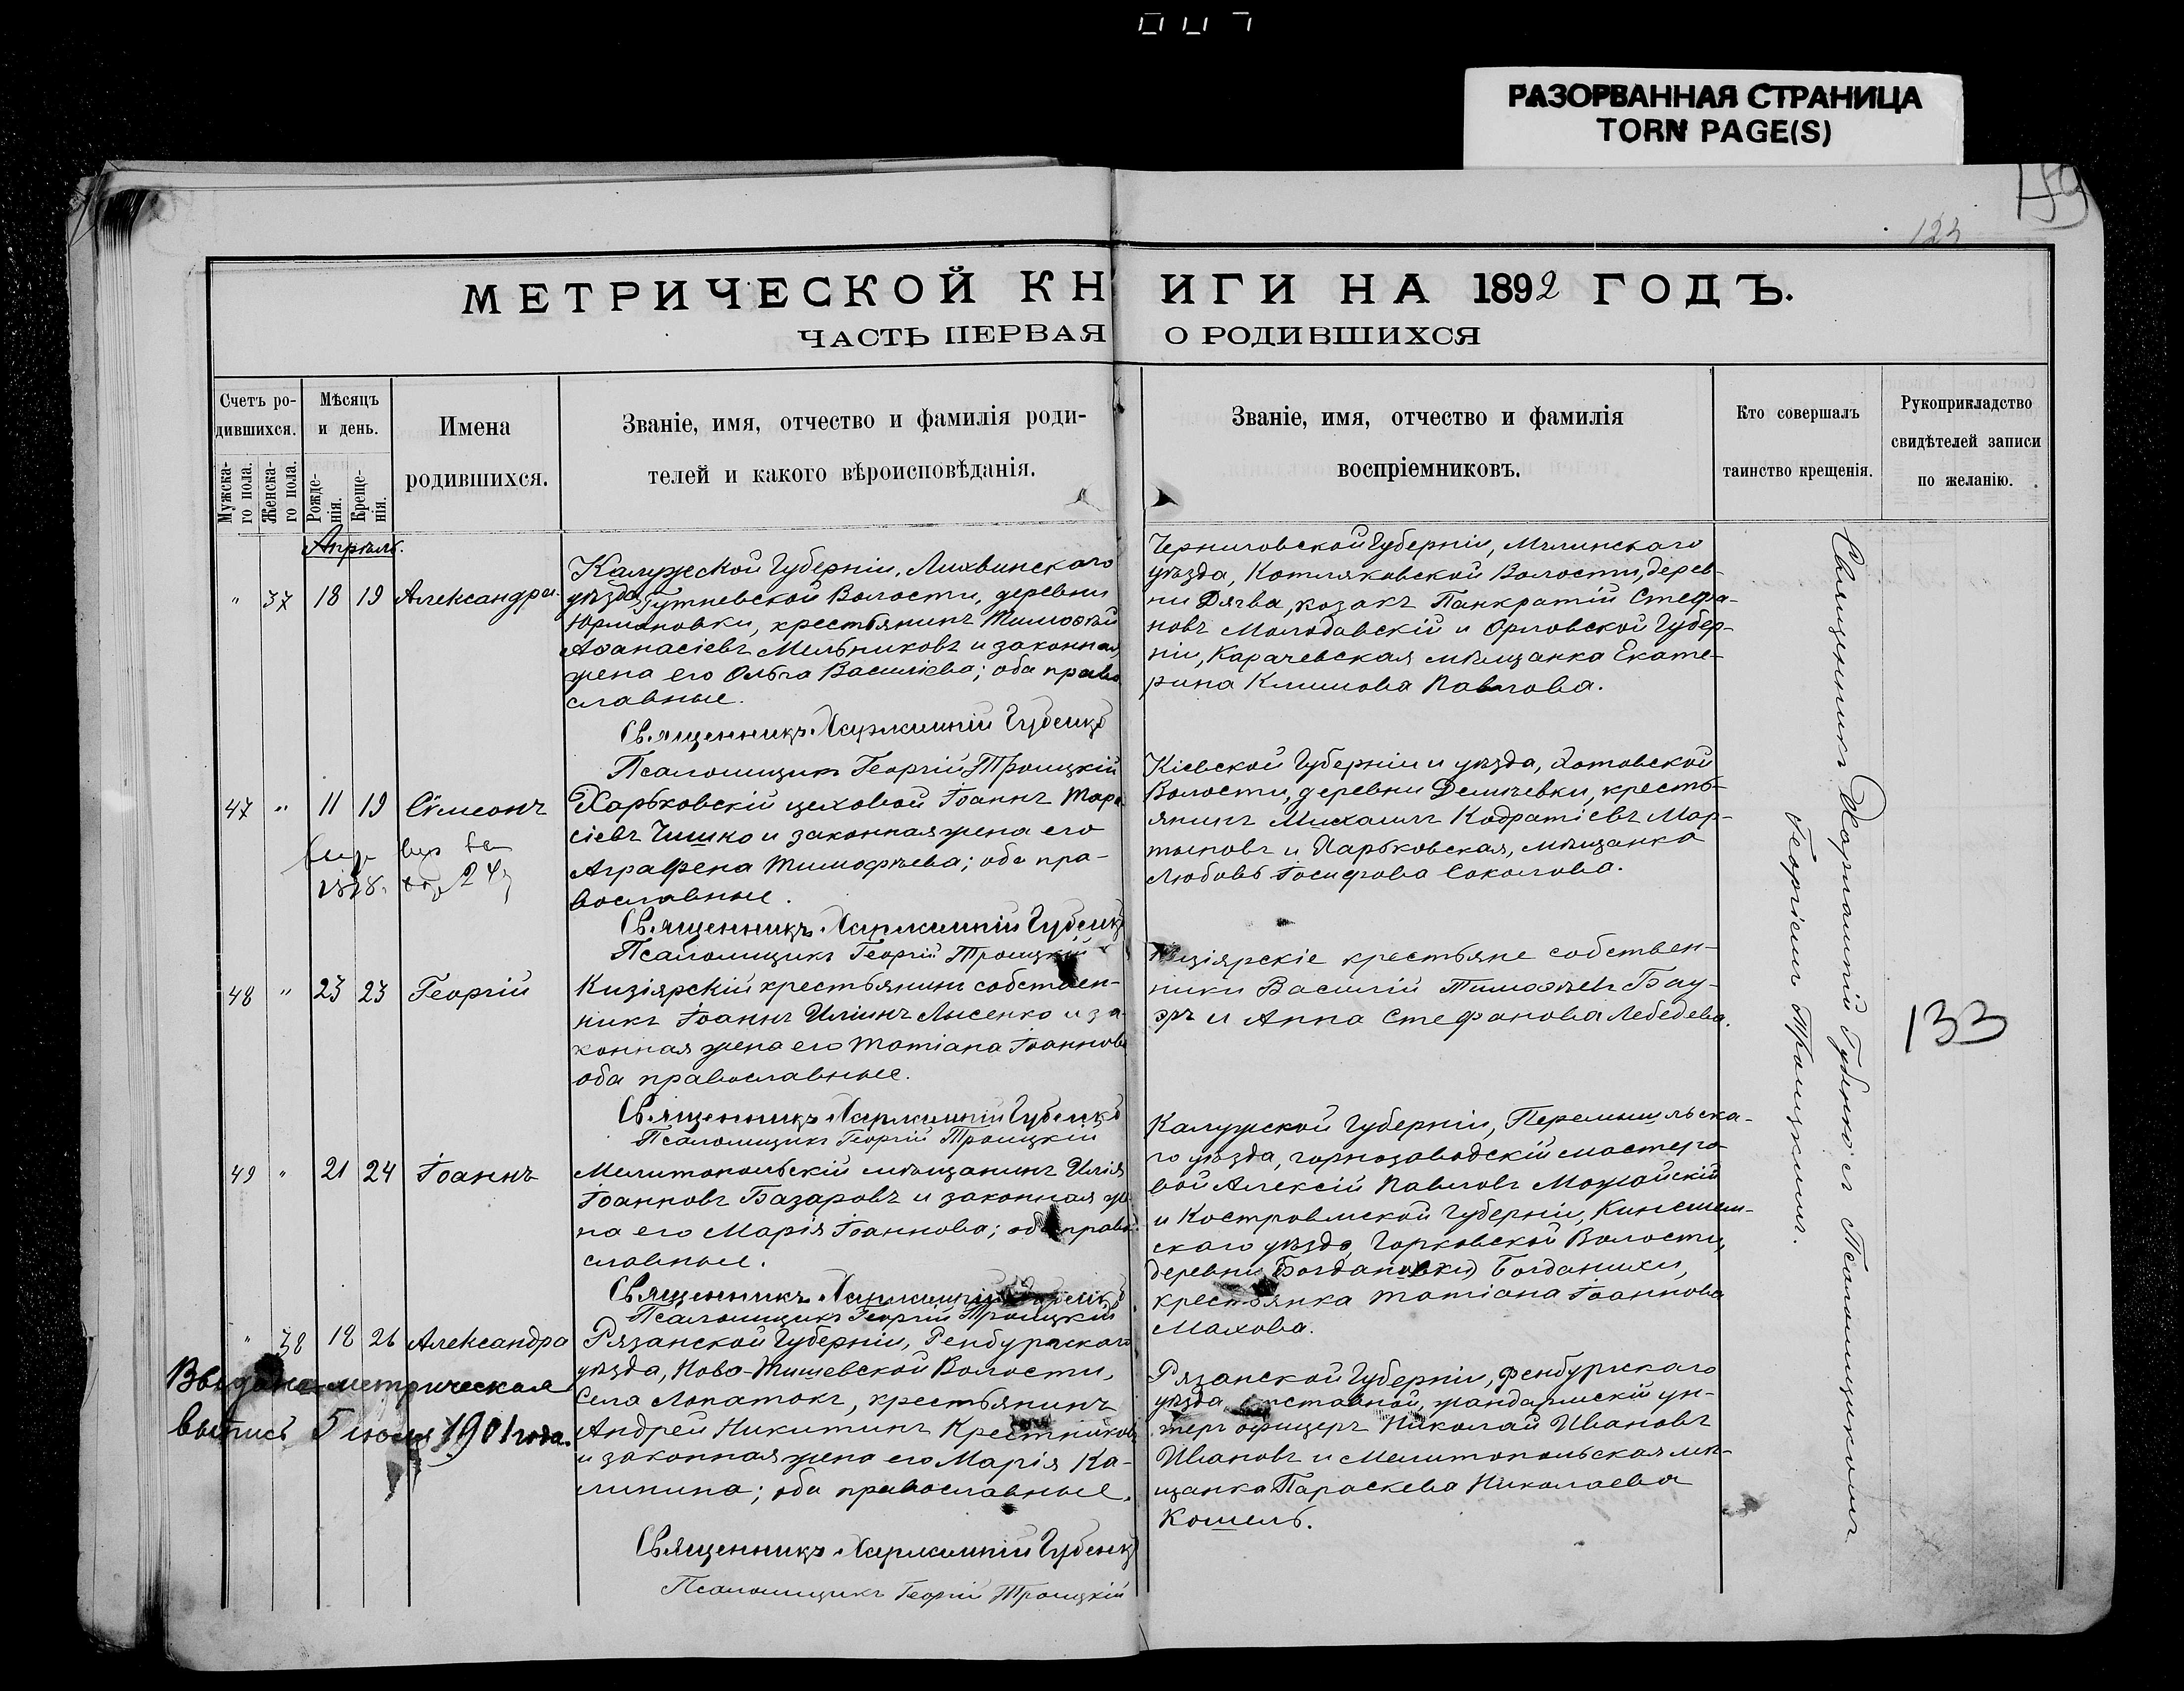 РАЗОРВАННАЯ СТРАНИЦА
TORN PAGE(S)
159
123
МЕТРИЧЕСКОЙ КНИГИ НА 1892 ГОДЪ.
ЧАСТЬ ПЕРВАЯ О РОДИВШИХСЯ
Счетъ ро-
дившихся.
Мужска-
го пола.
Женска-
го пола.
Мѣсяцъ
и день.
Рожде-
нія.
Креще-
нія.
Имена
родившихся.
Званіе, имя, отчество и фамилія роди-
телей и какого вѣроисповѣданія.
Званіе, имя, отчество и фамилія
воспріемниковъ.
Кто совершалъ
таинство крещенія.
Рукоприкладство
свидѣтелей записи
по желанію.
Апрѣль.
" 37 18 19 Александра.
Калужской Губерніи, Лихвинскаго
уѣзда, Гутневской Волости, деревни
Юрмановки, крестьянинъ Тимоѳей
Аѳанасіевъ Мельниковъ и законная
жена его Ольга Василіева; оба право
славные.
Священникъ Харлампій Губенко
Псаломщикъ Георгій Троицкій
Черниговской Губерніи, Мглинскаго
уѣзда, Котляковской Волости, дерев-
ни Дягва, козакъ Панкратій Стефа-
новъ Молодавскій и Орловской Губер-
ніи, Карачевская мѣщанка Екате-
рина Климова Павлова.
47 " 11 19 Сѷмеонъ
Харьковскій цеховой Іоаннъ Тара
сіевъ Чишко и законная жена его
Аграфена Тимофѣева; оба пра-
вославные.
Священникъ Харлампій Губенко
Псаломщикъ Георгій Троицкій
Кіевской Губерніи и уѣзда, Хотовской
Волости, деревни Демиевки, кресть-
янинъ Михаилъ Кодратіевъ Мар-
тыновъ и Харьковская, мѣщанка
Любовь Іосифова Соколова.
48 " 23 23 Георгій
Кизіярскій крестьянинъ собствен-
никъ Іоаннъ Иліинъ Лысенко и за
конная жена его Татіана Іоаннова
оба православные.
Священникъ Харлампій Губенко
Псаломщикъ Георгій Троицкій
Кизіярскіе крестьяне собствен-
ники Василій Тимоѳеевъ Бау-
эръ и Анна Стефанова Лебедева.
49 " 21 24 Іоаннъ
Мелитопольскій мѣщанинъ Илія
Іоанновъ Базаровъ и законная же
на его Марія Іоаннова; оба право-
славные.
Священникъ Харлампій Губенко
Псаломщикъ Георгій Троицкій
Калужской Губерніи, Перемышльска-
го уѣзда, горнозаводскій мастеро-
вой Алексій Павловъ Можайскій
и Костромской Губерніи, Кинешем-
скаго уѣзда, Горковской Волости,
деревни (Богдановки) Богданихи,
крестьянка Татіана Іоаннова
Махова.
" 38 18 26 Александра
Выдана метрическая
выпись 5 іюля 1901 года.
Рязанской Губерніи, Ренбургскаго
уѣзда, Ново-Тишевской Волости,
Села Лопатокъ, крестьянинъ
Андрей Никитинъ Крестниковъ
и законная жена его Марія Ка-
линина; оба православные.
Священникъ Харлампій Губенко
Псаломщикъ Георгій Троицкій
Рязанской Губерніи, Ренбургскаго
уѣзда отставной, жандармскій ун-
теръ офицеръ Николай Ивановъ
Ивановъ и Мелитопольская мѣ-
щанка Параскева Николаева
Кошель.
Священникъ Харлампій Губенко съ Псаломщикомъ
Георгіемъ Троицкимъ.
133